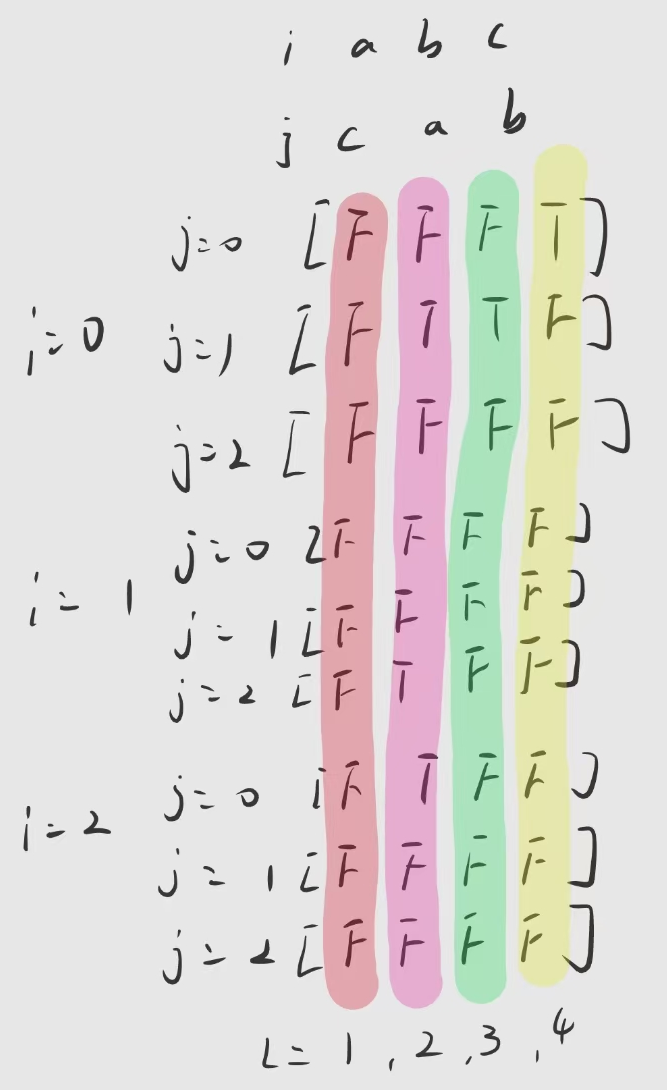 i a b c
j c a b
j=0 [F F F T]
i=0 j=1 [F T T F]
j=2 [F F F F]
j=0 [F F F F]
i=1 j=1 [F F F F]
j=2 [F T F F]
j=0 [F T F F]
i=2 j=1 [F F F F]
j=2 [F F F F]
L= 1, 2, 3, 4